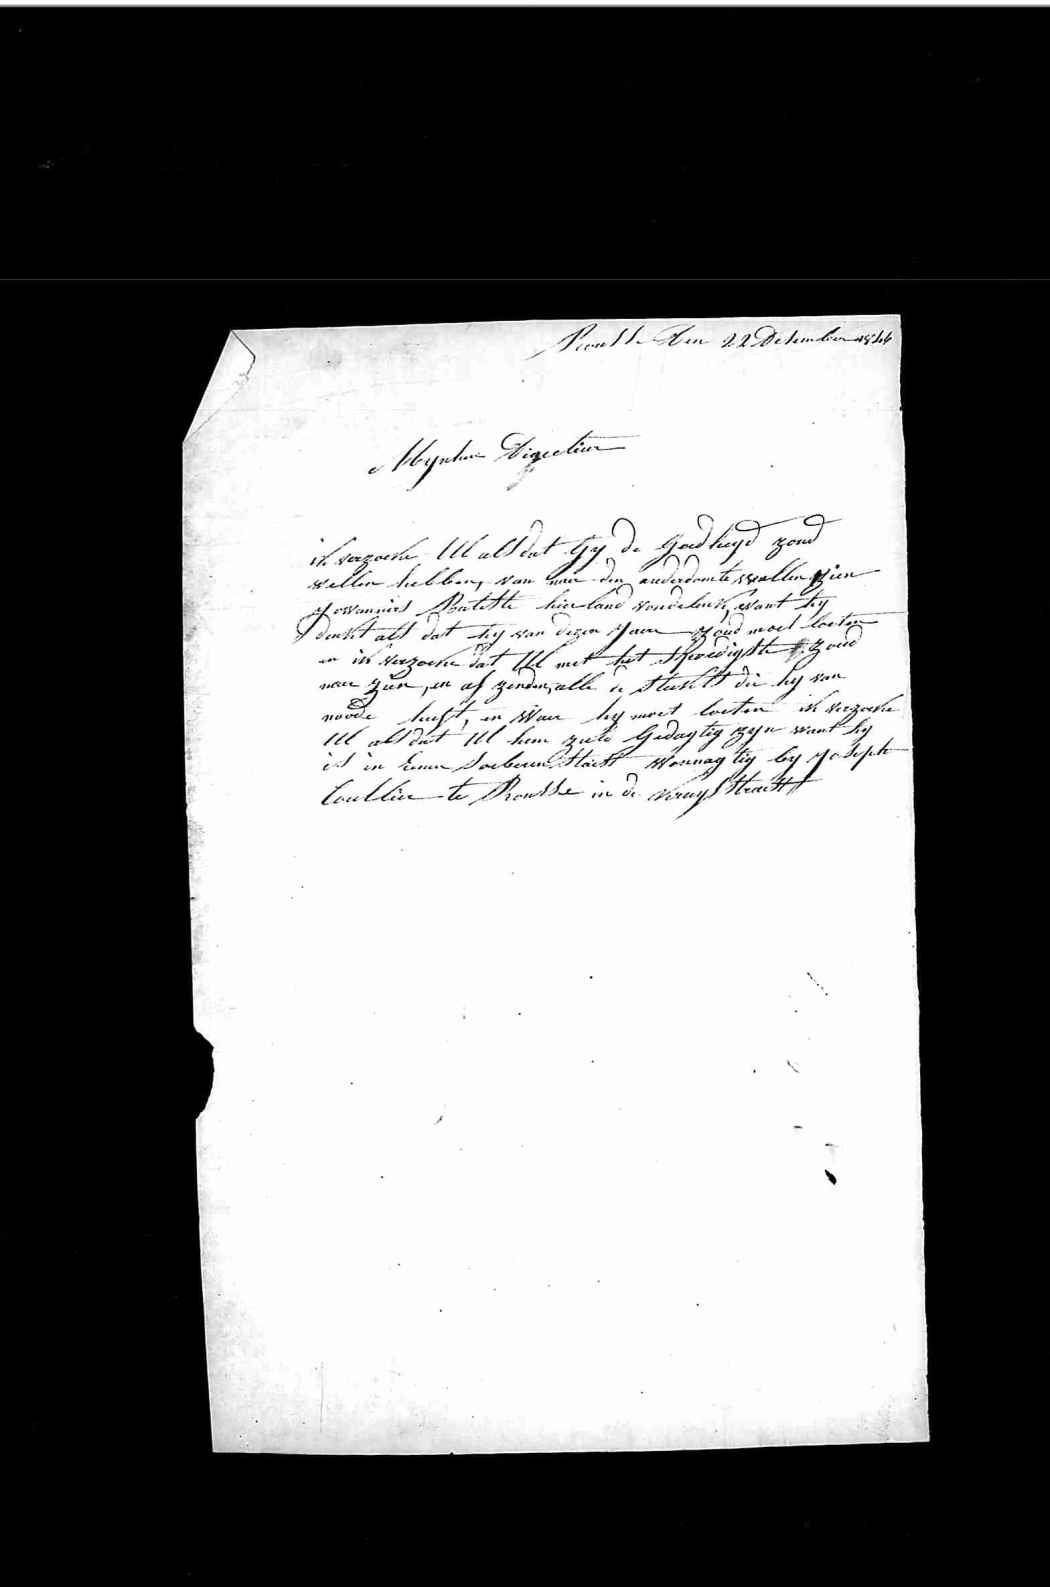 Rousse den 22 December 1846
Mynheer Directeur
ik verzoeke Ul als dat Gy de Goedheyd zoud
willen hebben, van naer den ouderdom te willen zien
Jowannies Batiste hierland vondelenk, want hy
denkt als dat hy van dezen Jaer zoud moet loeten
en ik verzoeke dat Ul met het spoedigste zoud
naer zien, en af zenden, alle de stukst die hy van
noode heeft, en waer hy moet loeten ik verzoeke
Ul als dat Ul hem zult Gedagtig zyn want hy
is in Eenen soeberen staest Wonnagtig by Joseph
Coullier te Rousse in de Kruys straett